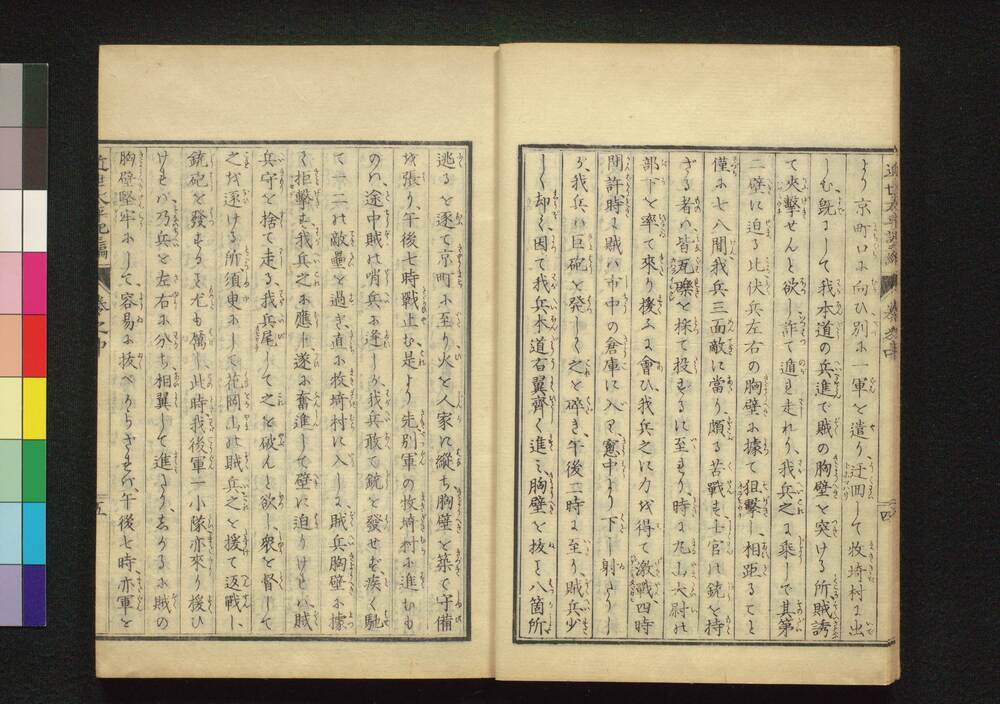 より京町口に向ひ別に一軍を遣り迂回して牧埼村に出
しむ既にして我本道の兵進で賊の胸壁を突ける所賊誘
て夾撃せんと欲し詐て遁れ走れり我兵之に乗じて其第
二壁に迫る比伏兵左右の胸壁に據て狙撃し相距ること
僅に七八間我兵三面敵に當り頗る苦戰も士官に銃を持
ざる者ハ皆瓦礫を採て投ずるに至れり時に九山大尉の
部下を率て來り援ふに會ひ我兵之に力を得て激戰四時
間許時に賊ハ市中の倉庫に入り窓中より下し射しり
が我兵ハ巨砲を発して之を碎き午後二時に至り賊兵少
しく却く因て我兵本道右翼齊く進み胸壁を抜こと八箇所
逃るを逐て京町に至り火を人家に縱ち胸壁を築て守備
を張り午後七時戰止む是より先別軍の牧埼村に進むも
のハ途中賊の哨兵に逢しが我兵敢て銃を發せず疾く馳
て一二の敵壘を過ぎ直に牧埼村に入しに賊兵胸壁に據
て拒撃す我兵之に應じ遂に奮進して壁に迫りけれハ賊
兵守を捨て走る我兵尾して之を破んと欲し衆を督して
之を逐ける所須臾にして花岡山の賊兵之を援て返戰し
銃砲を發すること尤も厲し此時我後軍一小隊亦來り援ひ
けれハ乃兵を左右に分ち相翼して進より志かるに賊の
胸壁堅牢にして容易に抜べからざれハ午後七時亦軍を
近世太平記編
巻之
四
五